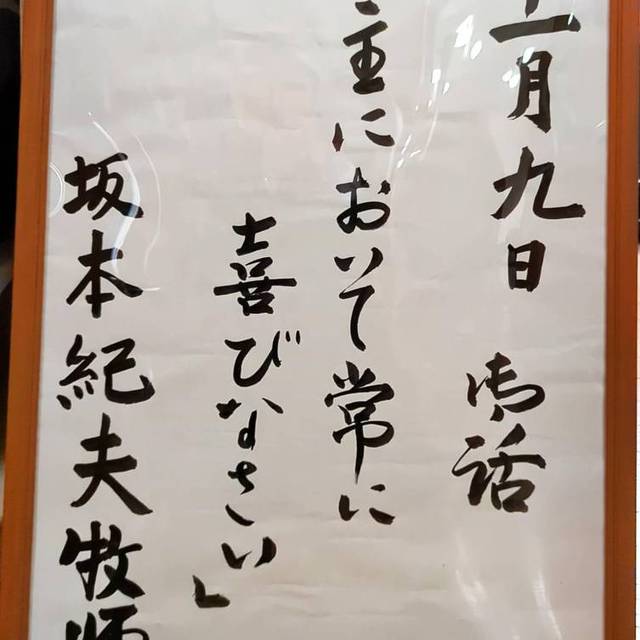 月九日 御話
主において常に
喜びなさい」
坂本紀夫牧師